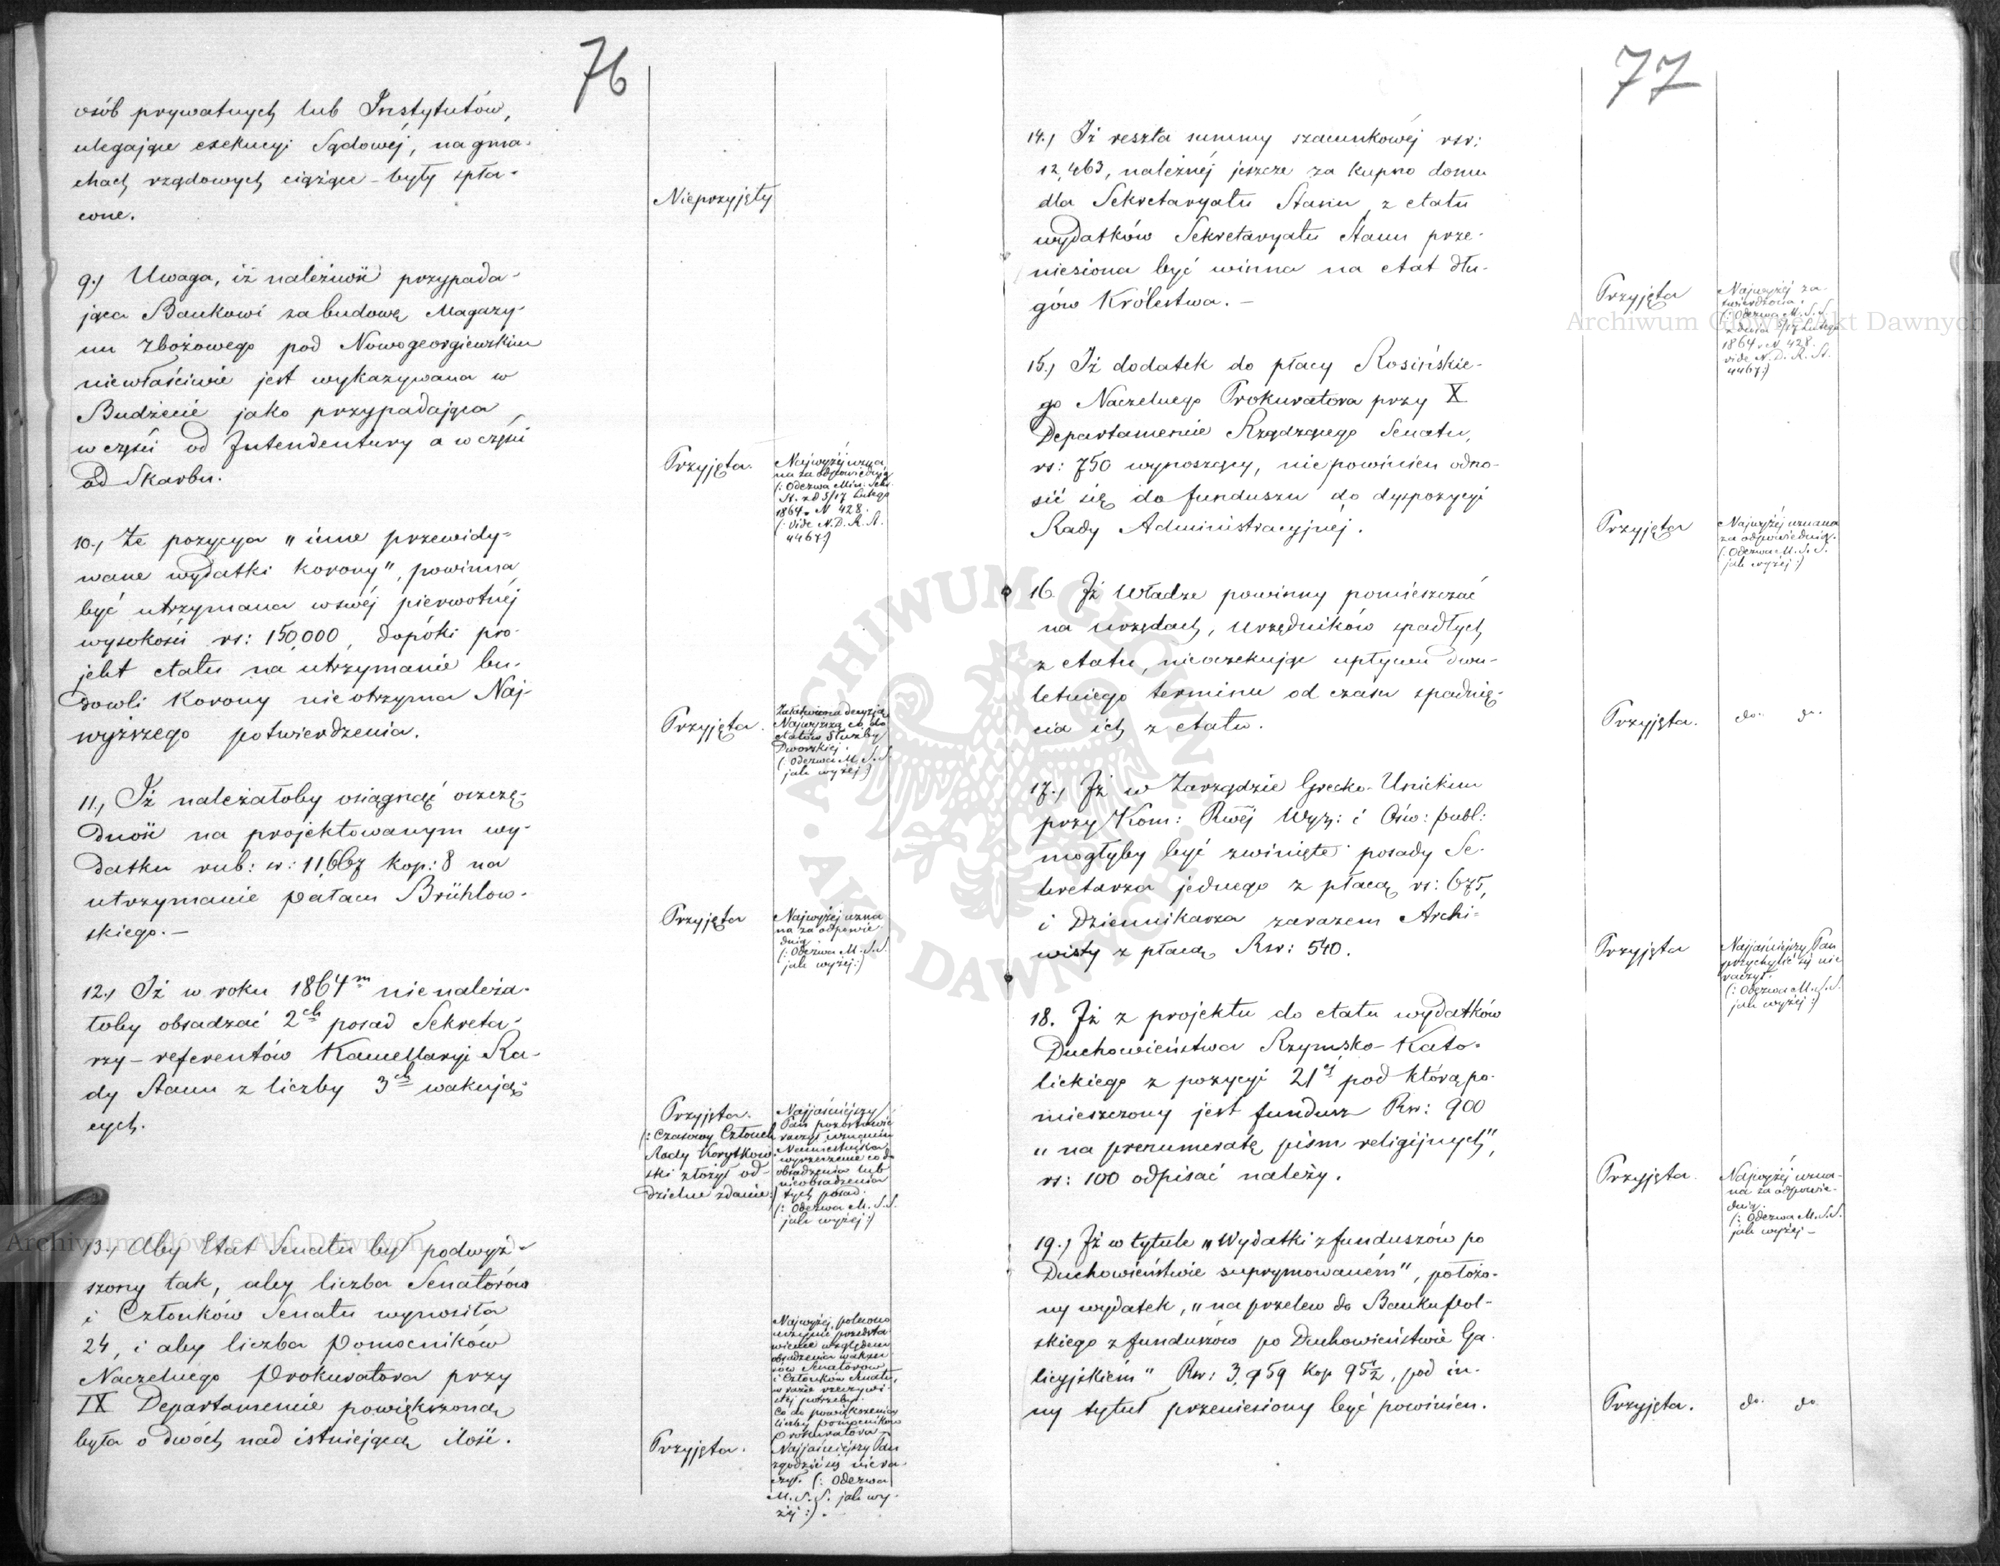 76
osób prywatnych lub Instytutów,
ulegające exekucyi Sądowéj, na gma-
chach rządowych ciążące – były spła-
cone.
Nieprzyjęty
9.) Uwaga, iż należność przypada-
jąca Bankowi za budowę Magazy-
nu Zbożowego pod Nowogeorgiewskiem
niewłaściwie jest wykazywana w
Budżecie jako przypadająca
w części od Intendentury a w części
od Skarbu.
Przyjęta.
Najwyżéj uzna
na za odpowiednią
(: Odezwa Min. Sekr.
St. z d 5/17 Lutego
1864. N 428.
(: vide N. D. R. A.
4467:)
10.) Że pozycya „inne przewidy-
wane wydatki Korony”, powinna
być utrzymana w swéj pierwotnéj
wysokości rs: 150,000, dopóki pro-
jekt etatu na utrzymanie bu-
dowli Korony nie otrzyma Naj-
wyższego potwierdzenia.
Przyjęta.
Załatwiona decyzją
Najwyższą co do
etatów Służby
Dworskiéj.
(: Odezwa M. S. S.
jak wyżéj:)
11.) Iż należałoby osiągnąć oszczę-
dność na projektowanym wy-
datku rub: sr: 11,667 kop: 8 na
utrzymanie pałacu Brühlow-
skiego. –
Przyjęta
Najwyżéj uzna
na za odpowie
dnią.
(: Odezwa M. S. S.
jak wyżéj:)
12.) Iż w roku 1864m nie należa-
łoby obsadzać 2ch posad Sekreta-
rzy – referentów Kancellaryi Ra-
dy Stanu z liczby 3ch wakują-
cych.
Przyjęta.
(: Czasowy Członek
Rady Korytkow-
ski złożył od-
dzielne zdanie:)
Najjaśniejszy
Pan pozostawić
raczył uznaniu
Namiestnika
wyrzeczenie co do
obsadzenia lub
nieobsadzenia
tych posad.
(: Odezwa M. S. S.
jak wyżéj:)
13.) Aby Etat Senatu był podwyż-
szony tak, aby liczba Senatorów
i Członków Senatu wynosiła
24, i aby liczba Pomocników
Naczelnego Prokuratora przy
IX Departamencie powiększoną
była o dwóch nad istniejącą ilość.
Przyjęta.
Najwyżéj polecono
uczynić przedsta
wienie względem
obsadzenia wakan
sów Senatorów
i Członków Senatu,
w razie rzeczywi
stéj potrzeby.
Co do powiększenia
liczby pomocników
Prokuratora –
Najjaśniejszy Pan
zgodzić się nie ra-
czył. (: Odezwa
M. S. S. jak wy-
żéj:). –
77
14.) Iż reszta summy szacunkowéj rsr:
12,463, należnéj jeszcze za kupno domu
dla Sekretaryatu Stanu, z etatu
wydatków Sekretaryatu Stanu prze-
niesiona być winna na etat dłu-
gów Królestwa. –
Przyjęta
Najwyżéj za-
twierdzona.
(: Odezwa M. S. S.
z dnia 5/17 Lutego
1864 r. N 428.
vide N. D. R. A.
4467:)
15.) Iż dodatek do płacy Rosińskie-
go Naczelnego Prokuratora przy X
Departamencie Rządzącego Senatu,
rs: 750 wynoszący, nie powinien odno-
sić się do funduszu do dyspozycyi
Rady Administracyjnéj.
Przyjęta
Najwyżéj uznana
za odpowiednią.
(: Odezwa M. S. S.
jak wyżéj:)
16. Iż Władze powinny pomieszczać
na urzędach, urzędników spadłych
z etatu, nie oczekując upływu dwu-
letniego terminu od czasu spadnię-
cia ich z etatu.
Przyjęta.
do. do.
17.) Iż w Zarządzie Grecko-Unickim
przy Kom: Rwéj Wyz: i Ośw: publ:
mogłyby być zwinięte posady Se-
kretarza jednego z płacą rs: 675,
i Dziennikarza zarazem Archi-
wisty z płacą Rsr: 540.
Przyjęta
Najjaśniejszy Pan
przychylić się nie
raczył.
(: Odezwa M. S. S.
jak wyżéj:)
18. Iż z projektu do etatu wydatków
Duchowieństwa Rzymsko-Kato-
lickiego z pozycyi 21éj pod którą po-
mieszczony jest fundusz Rsr: 900
„na prenumeratę pism religijnych”,
rs: 100 odpisać należy.
Przyjęta.
Najwyżéj uzna-
na za odpowie-
dnią.
(: Odezwa M. S. S.
jak wyżéj –
19.) Iż w tytule „Wydatki z funduszów po
Duchowieństwie suprymowaném”, położo-
ny wydatek, „na przelew do Banku Pol-
skiego z funduszów po Duchowieństwie Ga-
licyjskiém” Rsr: 3,959 kop 95½, pod in-
ny tytuł przeniesiony być powinien.
Przyjęta.
do. do.
Archiwum Główne Akt Dawnych
Archiwum Główne Akt Dawnych
ARCHIWUM GŁÓWNE
AKT DAWNYCH